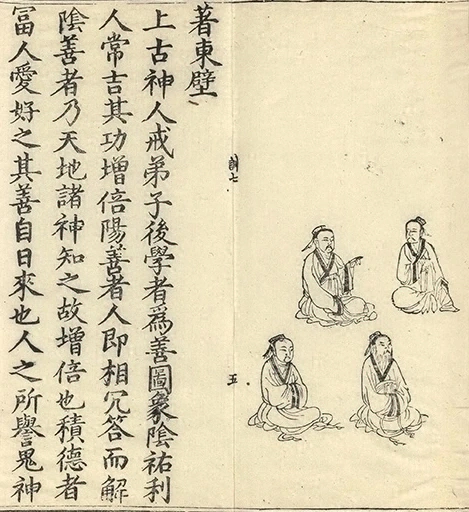 訓七
五
著東壁
上古神人戒弟子後學者爲善圖象陰祐利
人常吉其功增倍陽善者人即相冗答而解
陰善者乃天地諸神知之故增倍也積德者
冨人愛好之其善自日來也人之所譽鬼神